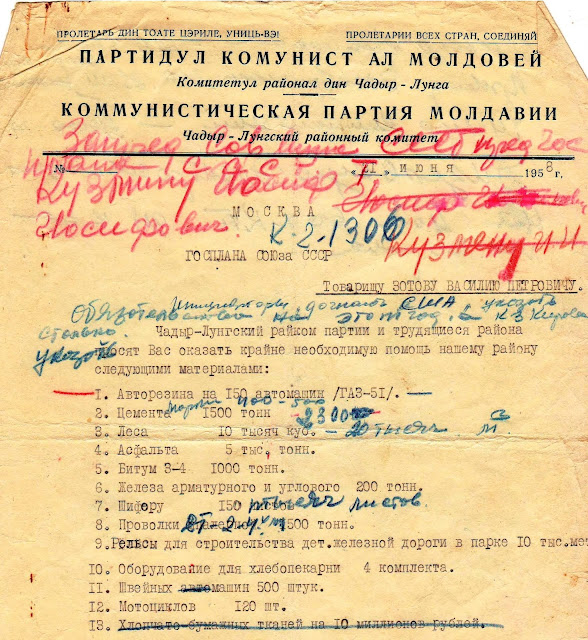 ПРОЛЕТАРЬ ДИН ТОАТЕ ЦЭРИЛЕ, УНИЦЬ-ВЭ! ПРОЛЕТАРИИ ВСЕХ СТРАН, СОЕДИНЯЙ
ПАРТИДУЛ КОМУНИСТ АЛ МОЛДОВЕЙ
Комитетул районал дин Чадыр - Лунга
КОММУНИСТИЧЕСКАЯ ПАРТИЯ МОЛДАВИИ
Чадыр - Лунгский районный комитет
Зампред Сов
№ „21" ИЮНЯ 1958 г.
Кузмину Иосиф
Иосифович.
МОСКВА
К-2-1300
Кузмену И И
ГОСПЛАНА СОЮЗа СССР
Товарищу ЗОТОВУ ВАСИЛИЮ ПЕТРОВИЧУ.
Обязательства на этот год. догнать США указать
столько
Чадыр-Лунгский райком партии и трудящиеся района
указать
просят Вас оказать крайне необходимую помощь нашему району
следующими материалами:
1. Авторезина на 150 автомашин /ГАЗ-51/.
марки 400-500
2. Цемента 1500 тонн 2300
3. Леса 10 тысяч куб. - 20 тысяч м3
4. Асфальта 5 тыс. тонн.
5. Битум 3-4. 1000 тонн.
6. Железа арматурного и углового 200 тонн.
7. Шиферу 150 тысяч листов.
8. Проволки 1500 тонн.
9. Рельсы для строительства дет.железной дороги в парке 10 тыс.ме
10. Оборудование для хлебопекарни 4 комплекта.
11. Швейных автомашин 500 штук.
12. Мотоциклов 120 шт.
13. Хлопчато-бумажных тканей на 10 миллионов рублей.